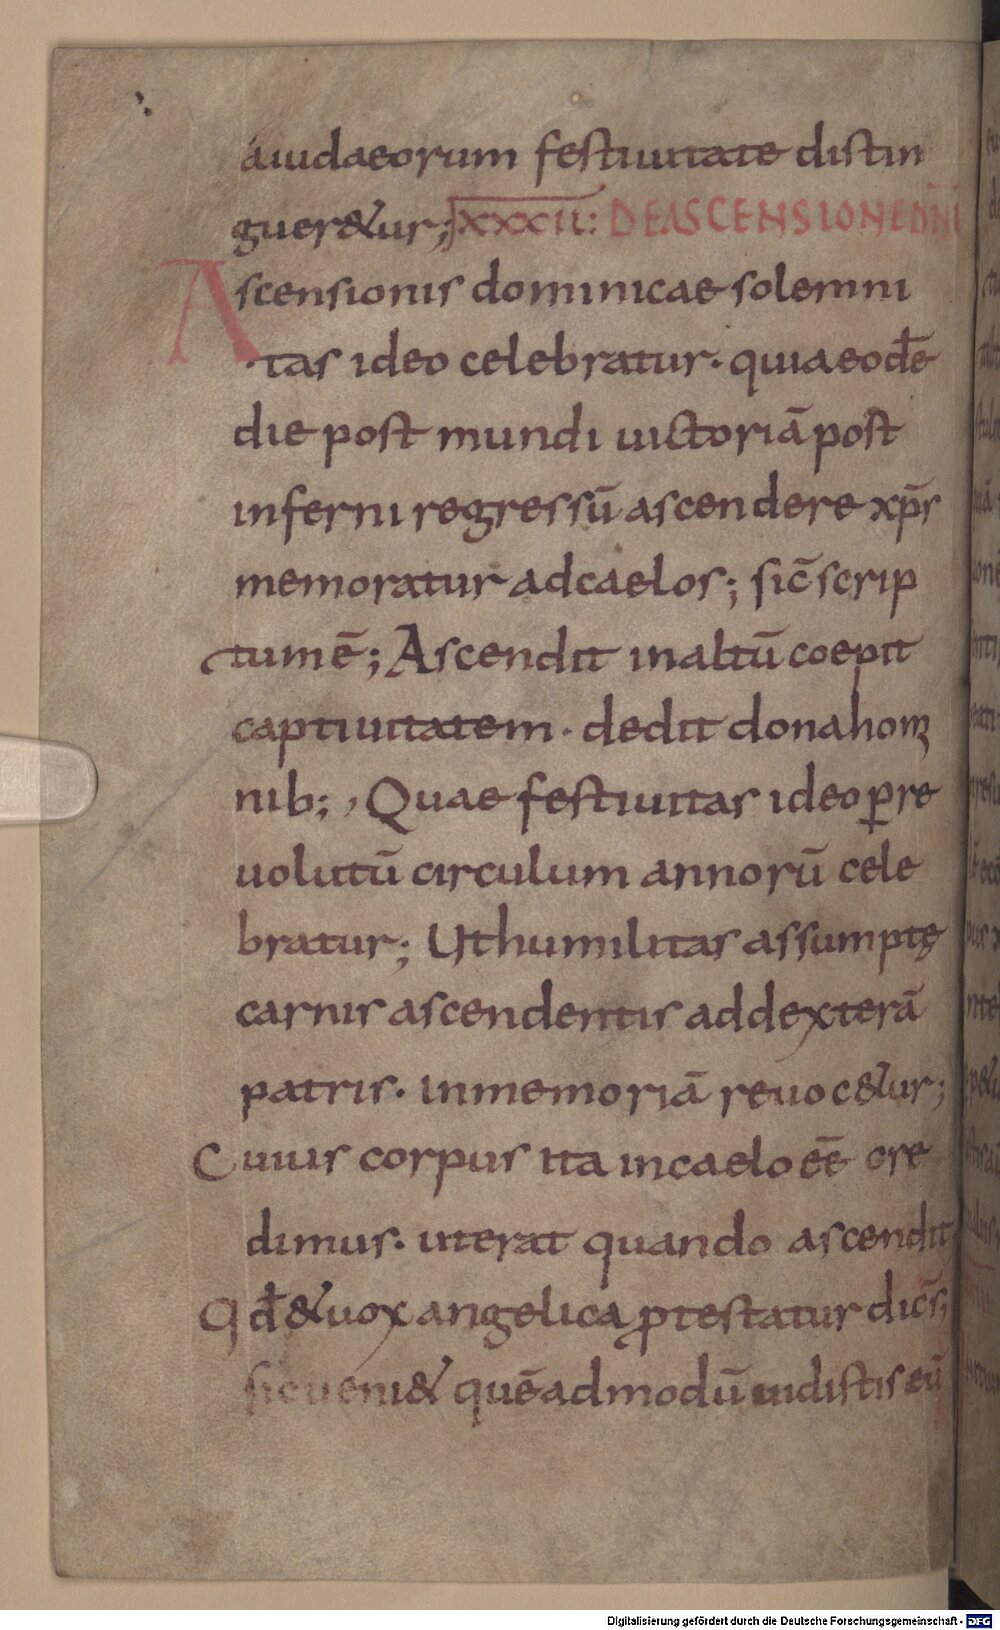 aiudaeorum festiuitate distin
guer&ur; XXXII: DE ASCENSIONE DNĪ
Ascensionis dominicae solemni
tas ideo celebratur · quia eodē
die post mundi uictoriā post
inferni regressū ascendere xp̄s
memoratur ad caelos; sic̄ scrip
tum ē; Ascendit in altū coepit
captiuitatem · dedit dona homi
nib; , Quae festiuitas ideo ꝑ re
uolutū circulum annorū cele
bratur; Ut humilitas assumptę
carnis ascendentis ad dexterā
patris · in memoriā reuoc&ur;
Cuius corpus ita in caelo eē cre
dimus · ut erat quando ascendit
Qđ & uox angelica ꝓtestatur dic̄s;
sic ueni& quēadmodū uidistis eū
Digitalisierung gefördert durch die Deutsche Forschungsgemeinschaft - DFG